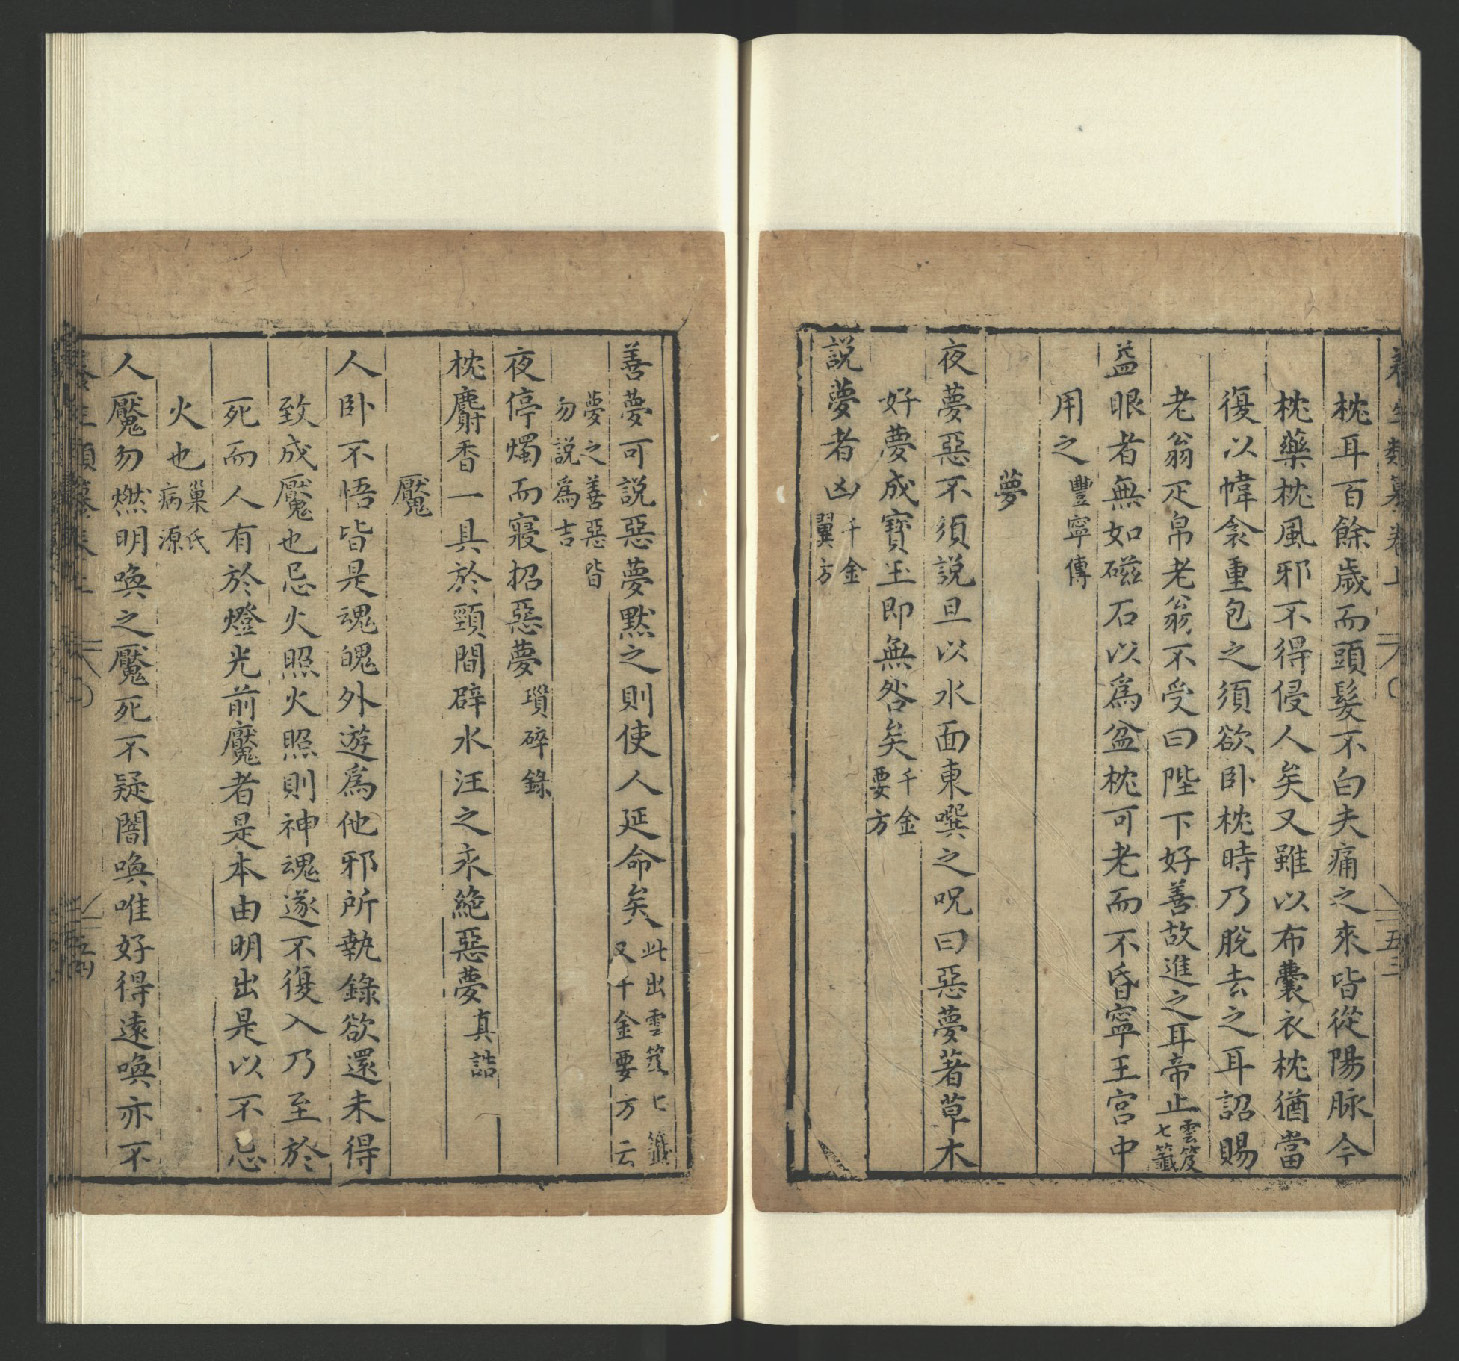 養生類纂卷上 五三
枕耳百餘歲而頭髮不白夫痛之來皆從陽脉今
枕藥枕風邪不得侵人矣又雖以布囊衣枕猶當
復以幃衾重包之須欲卧枕時乃脫去之耳詔賜
老翁疋帛老翁不受曰陛下好善故進之耳帝止雲笈七籤
益眼者無如磁石以爲盆枕可老而不昏寧王宮中
用之豐寧傳
夢
夜夢惡不須說旦以水面東噀之呪曰惡夢著草木
好夢成寶玉即無咎矣千金要方
說夢者凶千金翼方
善夢可說惡夢默之則使人延命矣此出雲笈七籤又千金要方云
夢之善惡皆勿說爲吉
夜停燭而寢招惡夢瑣碎錄
枕麝香一具於頸間辟水注之永絶惡夢真誥
魘
人卧不悟皆是魂魄外遊爲他邪所執錄欲還未得
致成魘也忌火照火照則神魂遂不復入乃至於
死而人有於燈光前魘者是本由明出是以不忌
火也巢氏病源
人魘勿燃明喚之魘死不疑闇喚唯好得遠喚亦不
養生類纂卷上 五四